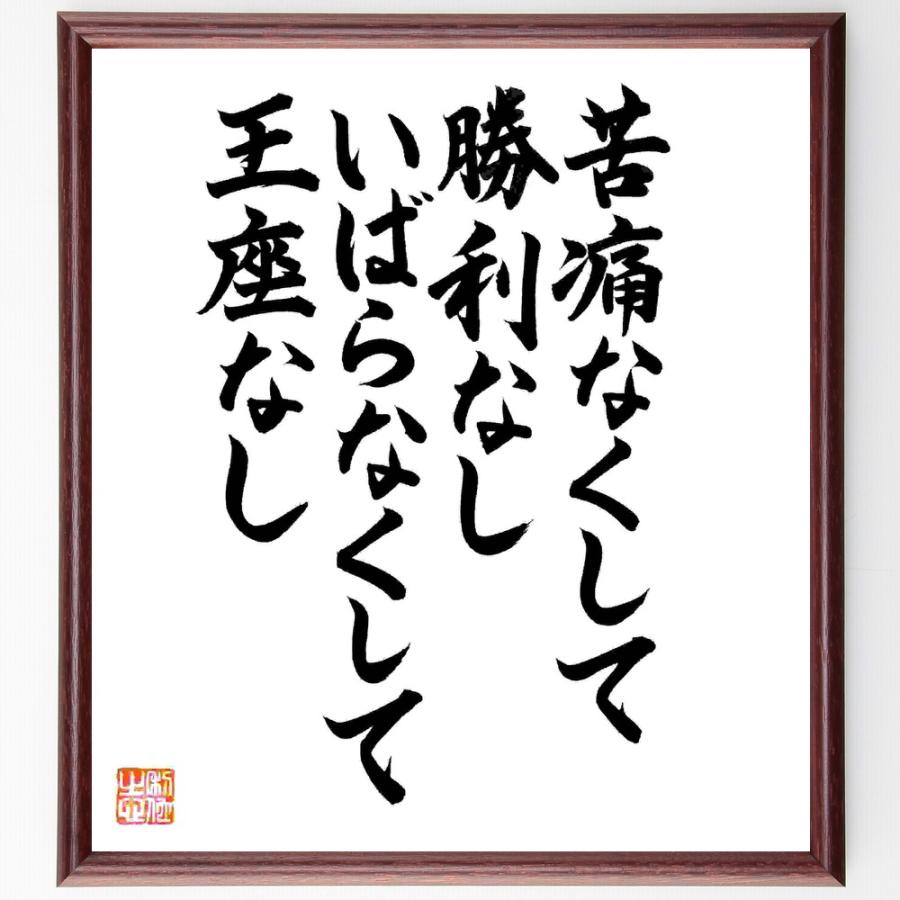 苦痛なくして
勝利なし
いばらなくして
王座なし